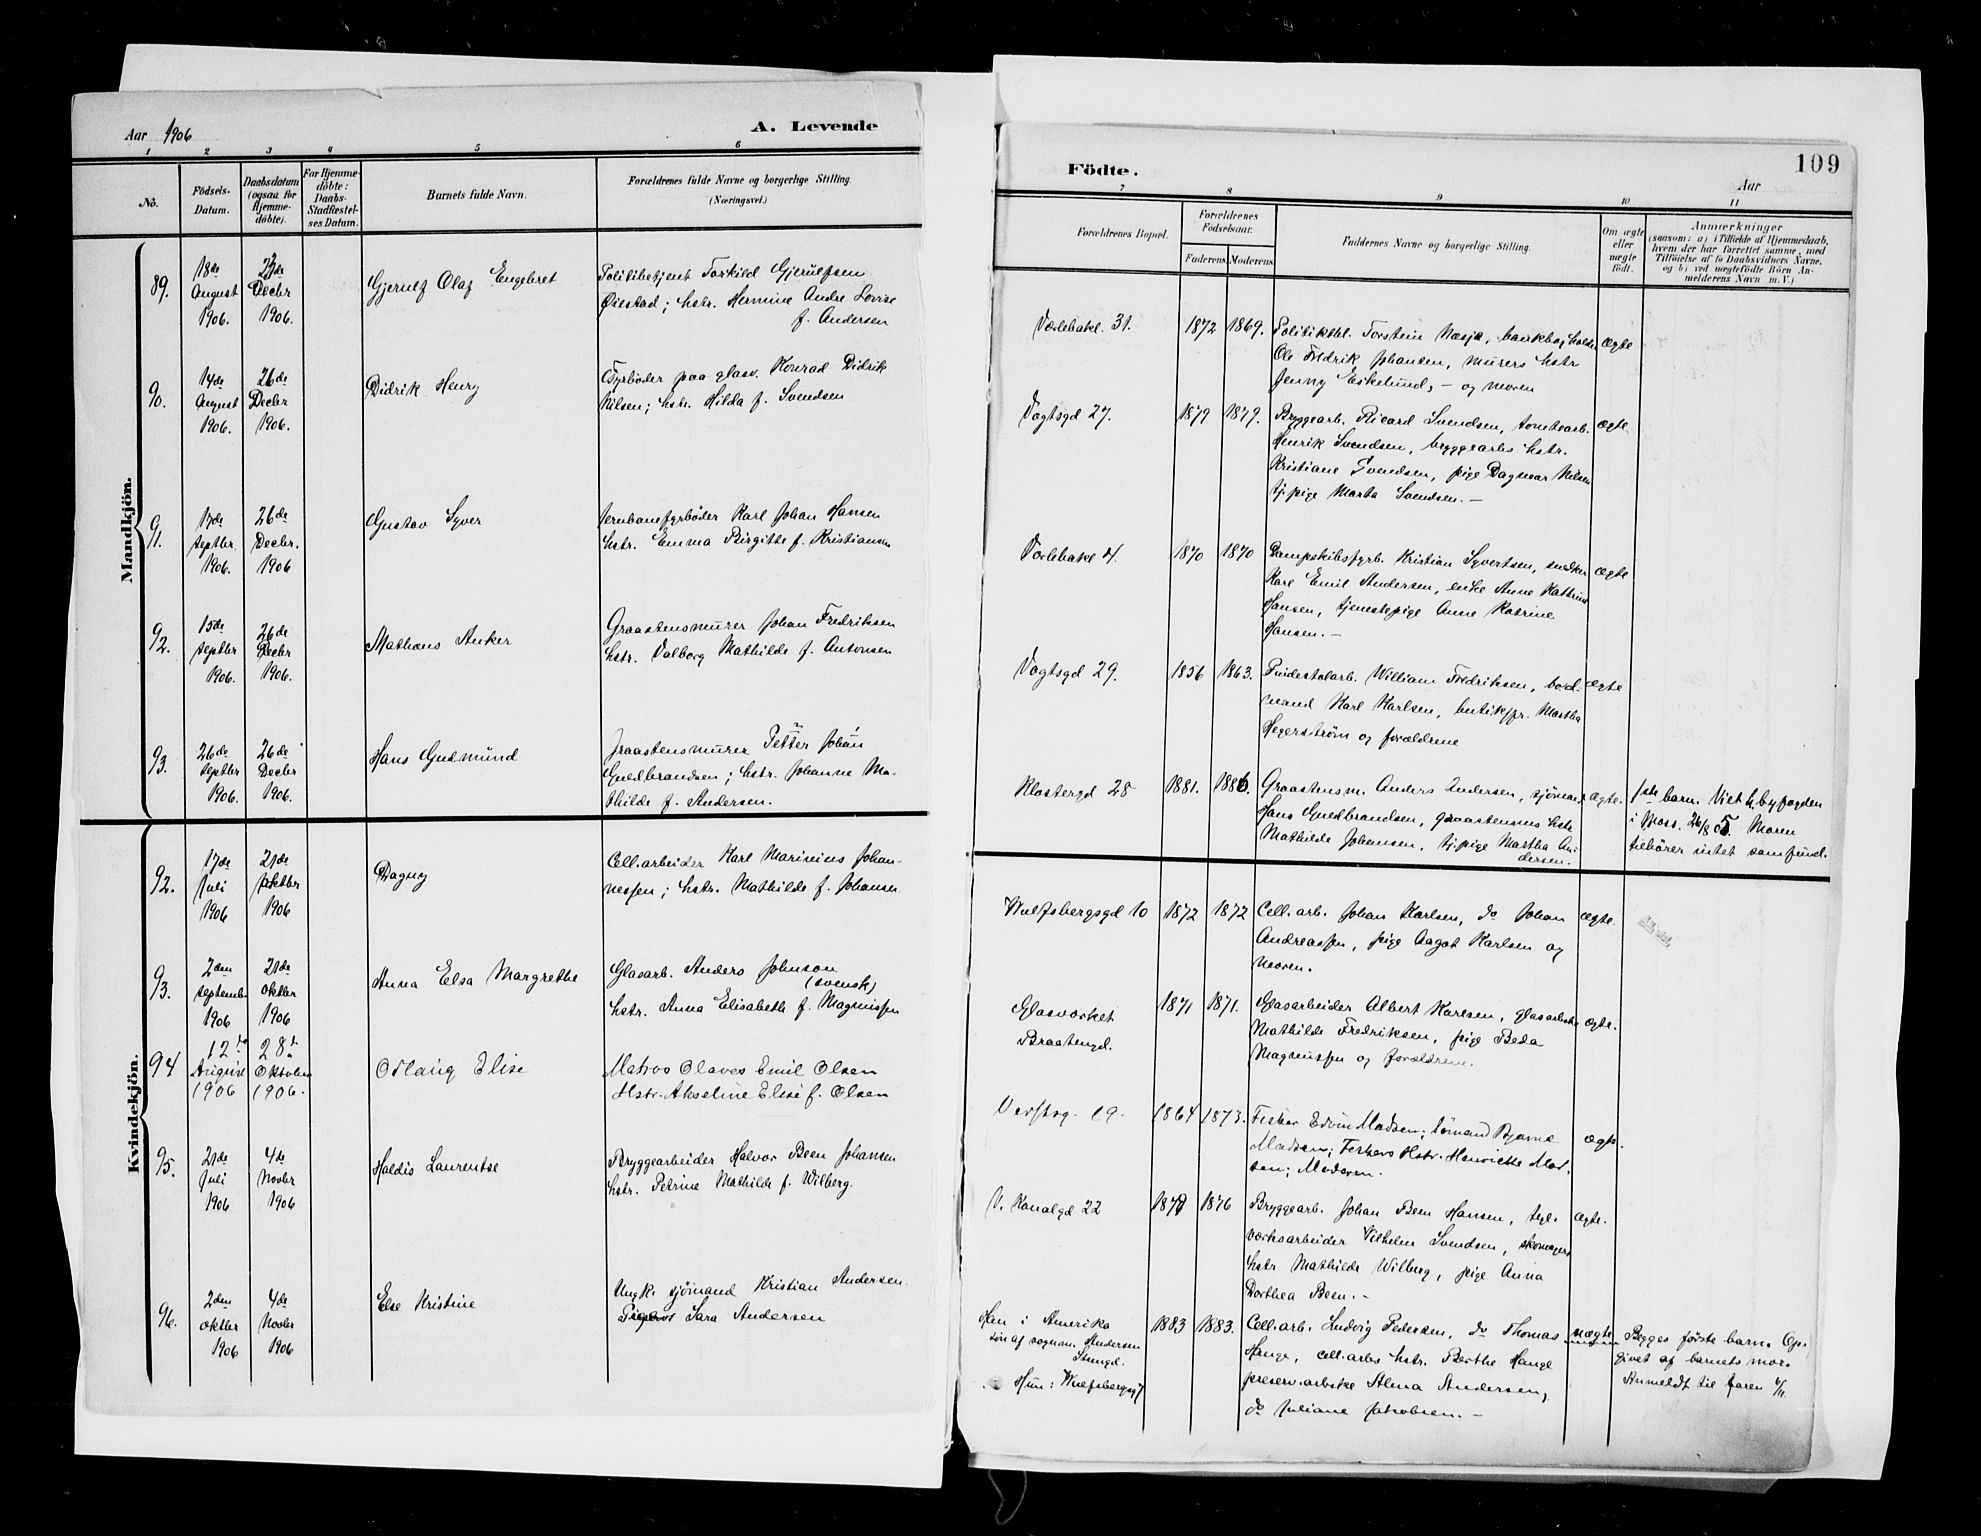 Aar 1906
A. Levende
1 2 3 4 5 6
No.
Födsels-
Datum.
Daabsdatum
(ogsaa for
Hjemme-
döbte).
For Hjemme-
döbte:
Daabs-
Stadfæstel-
ses Datum.
Barnets fulde Navn.
Forældrenes fulde Navne og borgerlige Stilling.
(Næringsvei.)
Mandkjön.
89.
18de
August
1906.
Decbr
1906.
Gjerulf Olaf Engebret
Politibetjent Torkild Gjerulfsen
Øiestad; hstr. Hermine Andre Lovise
f. Andersen
90.
14de
August
1906.
26de
Decbr
1906.
Didrik Henry
Fyrbøder paa glasv. Konrad Didrik
Nilsen; hstr. Hilda f. Svendsen
91.
17de
Septbr.
1906.
26de
Decbr.
1906
Gustav Syver
Jernbanefyrbøder Karl Johan Hansen
hstr. Emma Birgitte f. Kristiansen
92.
15de
Septbr
1906.
26de
Decbr
1906.
Mathæus Anker
Graastensmurer Johan Fredriksen
hstr. Valborg Mathilde f. Antonsen
93.
26de
Septbr
1906.
26de
Decbr
1906.
Hans Gudmund
Graastensmurer Petter Johan
Guldbrandsen; hstr. Johanne Ma-
thilde f. Andersen.
Kvindekjön.
92.
17de
Juli
1906
21de
Oktbr
1906
Dagny
Cell.arbeider Karl Marinius Johan-
nessen; hstr. Mathilde f. Johansen
93.
2den
Septemb
1906
21de
Oktbr
1906
Anna Elsa Margrethe
Glasarb. Anders Johnson
(svensk)
hstr. Anna Elisabeth f. Magnussen
94
12te
August
1906
28de
Oktober
1906.
Oslaug Elise
Matros Olaves Emil Olsen
Hstr. Akseline Elise f. Olsen
95.
21de
Juli
1906
4de
Novbr
1906
Haldis Laurentse
Bryggearbeider Halvor Been Johansen
hstr. Petrine Mathilde f. Wilberg.
96.
2den
Oktbr
1906
4de
Novbr
1906
Else Kristine
Ungk. sjømand Kristian Andersen.
Sara Andersen
109
Födte.
Aar
7 8 9 10 11
Forældrenes Bopæl.
Forældrenes
Födselsaar.
Faderens. Moderens.
Faddernes Navne og borgerlige Stilling.
Om ægte
eller
uægte
födt.
Anmærkninger
(saasom: a) i Tilfælde af Hjemmedaab,
hvem der har forrettet samme, med
Tilföielse af to Daabsvidners Navne,
og b) ved uægtefödte Börn An-
melderens Navn m. V.)
Værlebakl. 31.
1872 1869.
Politiktbl. Torstein Næsje, bankbogholder
Ole Fredrik Johansen, murers hstr
Jenny Eskelund, – og moren
ægte
Vogtsgd 27.
1879 1879.
Bryggearb. Ricard Svendsen, tomtearb.
Henrik Svendsen, bryggearbs hstr.
Kristiane Svendsen, pige Dagmar Nilsen
tj. pige Marta Svendsen. –
ægte
Værlebakl 4.
1870 1870
Dampskibsfyrb. Kristian Syvertsen, snedker
Karl Emil Andersen, enke Anne Kathrine
Hansen, tjenestepige Anne Katrine
Hansen. –
ægte
Vogtsgd 29.
1856 1863.
Pindestolarb. William Fredriksen, bord-
mand Karl Karlsen, butikjfr. Martha
Hegerstrøm og forældrene
ægte
Klostergd 28
1881. 1886.
Graastensm. Anders Andersen, sjømand
Hans Guldbrandsen, graastensms hstr
Mathilde Johansen, tj. pige Martha An-
dersen.
ægte.
1ste barn. Viet h. byfogden
i Moss. 26/8 05. Moren
tilhører intet samfund.
Wulfsbergsgd 10
1872 1872
Cell. arb. Johan Karlsen, do Johan
Andreassen, pige Aagot Karlsen og
moren.
ægte.
Glasværket
Braatengd.
1871 1871.
Glasarbeider Albert Karlsen, glasarbske
Mathilde Fredriksen, pige Beda
Magnussen og forældrene.
ægte.
Verftsg. 19.
1864 1873.
Fisker Edvin Madsen; Sømand Bjarne
Madsen; Fiskers Hstr. Henriette Mad-
sen; Moderen.
ægte.
V. Kanalgd 22
1870 1876
Bryggearb. Johan Been Hansen, tegl-
værksarbeider Vilhelm Svendsen, skomagers
hstr Mathilde Wilberg, pige Anna
Dorthea Been. –
ægte.
Han i Amerika
søn af vognm. Andersen
Stengd.
Hun: Wulfsbergsg 7
1883 1883.
Cell. arb. Ludvig Pedersen, do Thomas
Hauge, cell.arbs hstr. Berthe Hauge
preserv.arbske Alma Andersen,
do Juliane Jakobsen. –
uægte
Begges første barn. Op-
givet af barnets mor.
Anmeldt til faren 6/11